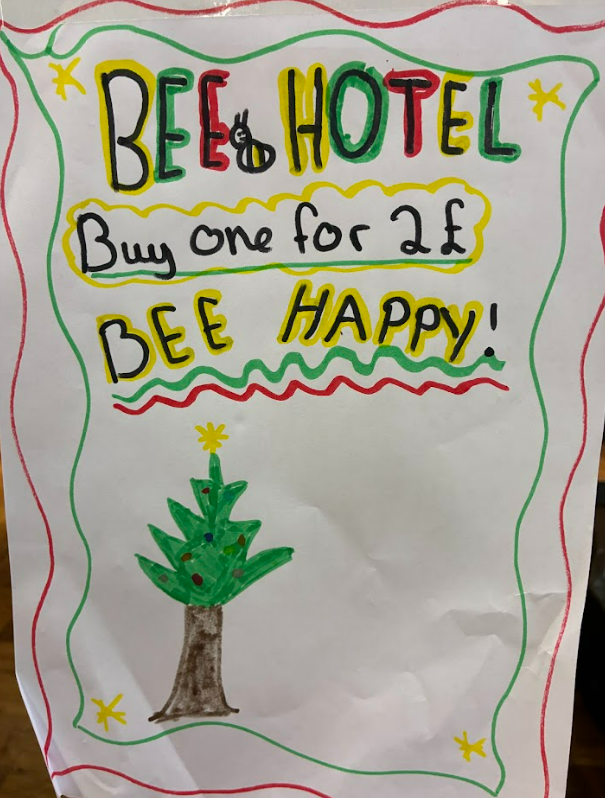 BEE HOTEL
Buy one for 2£
BEE HAPPY!